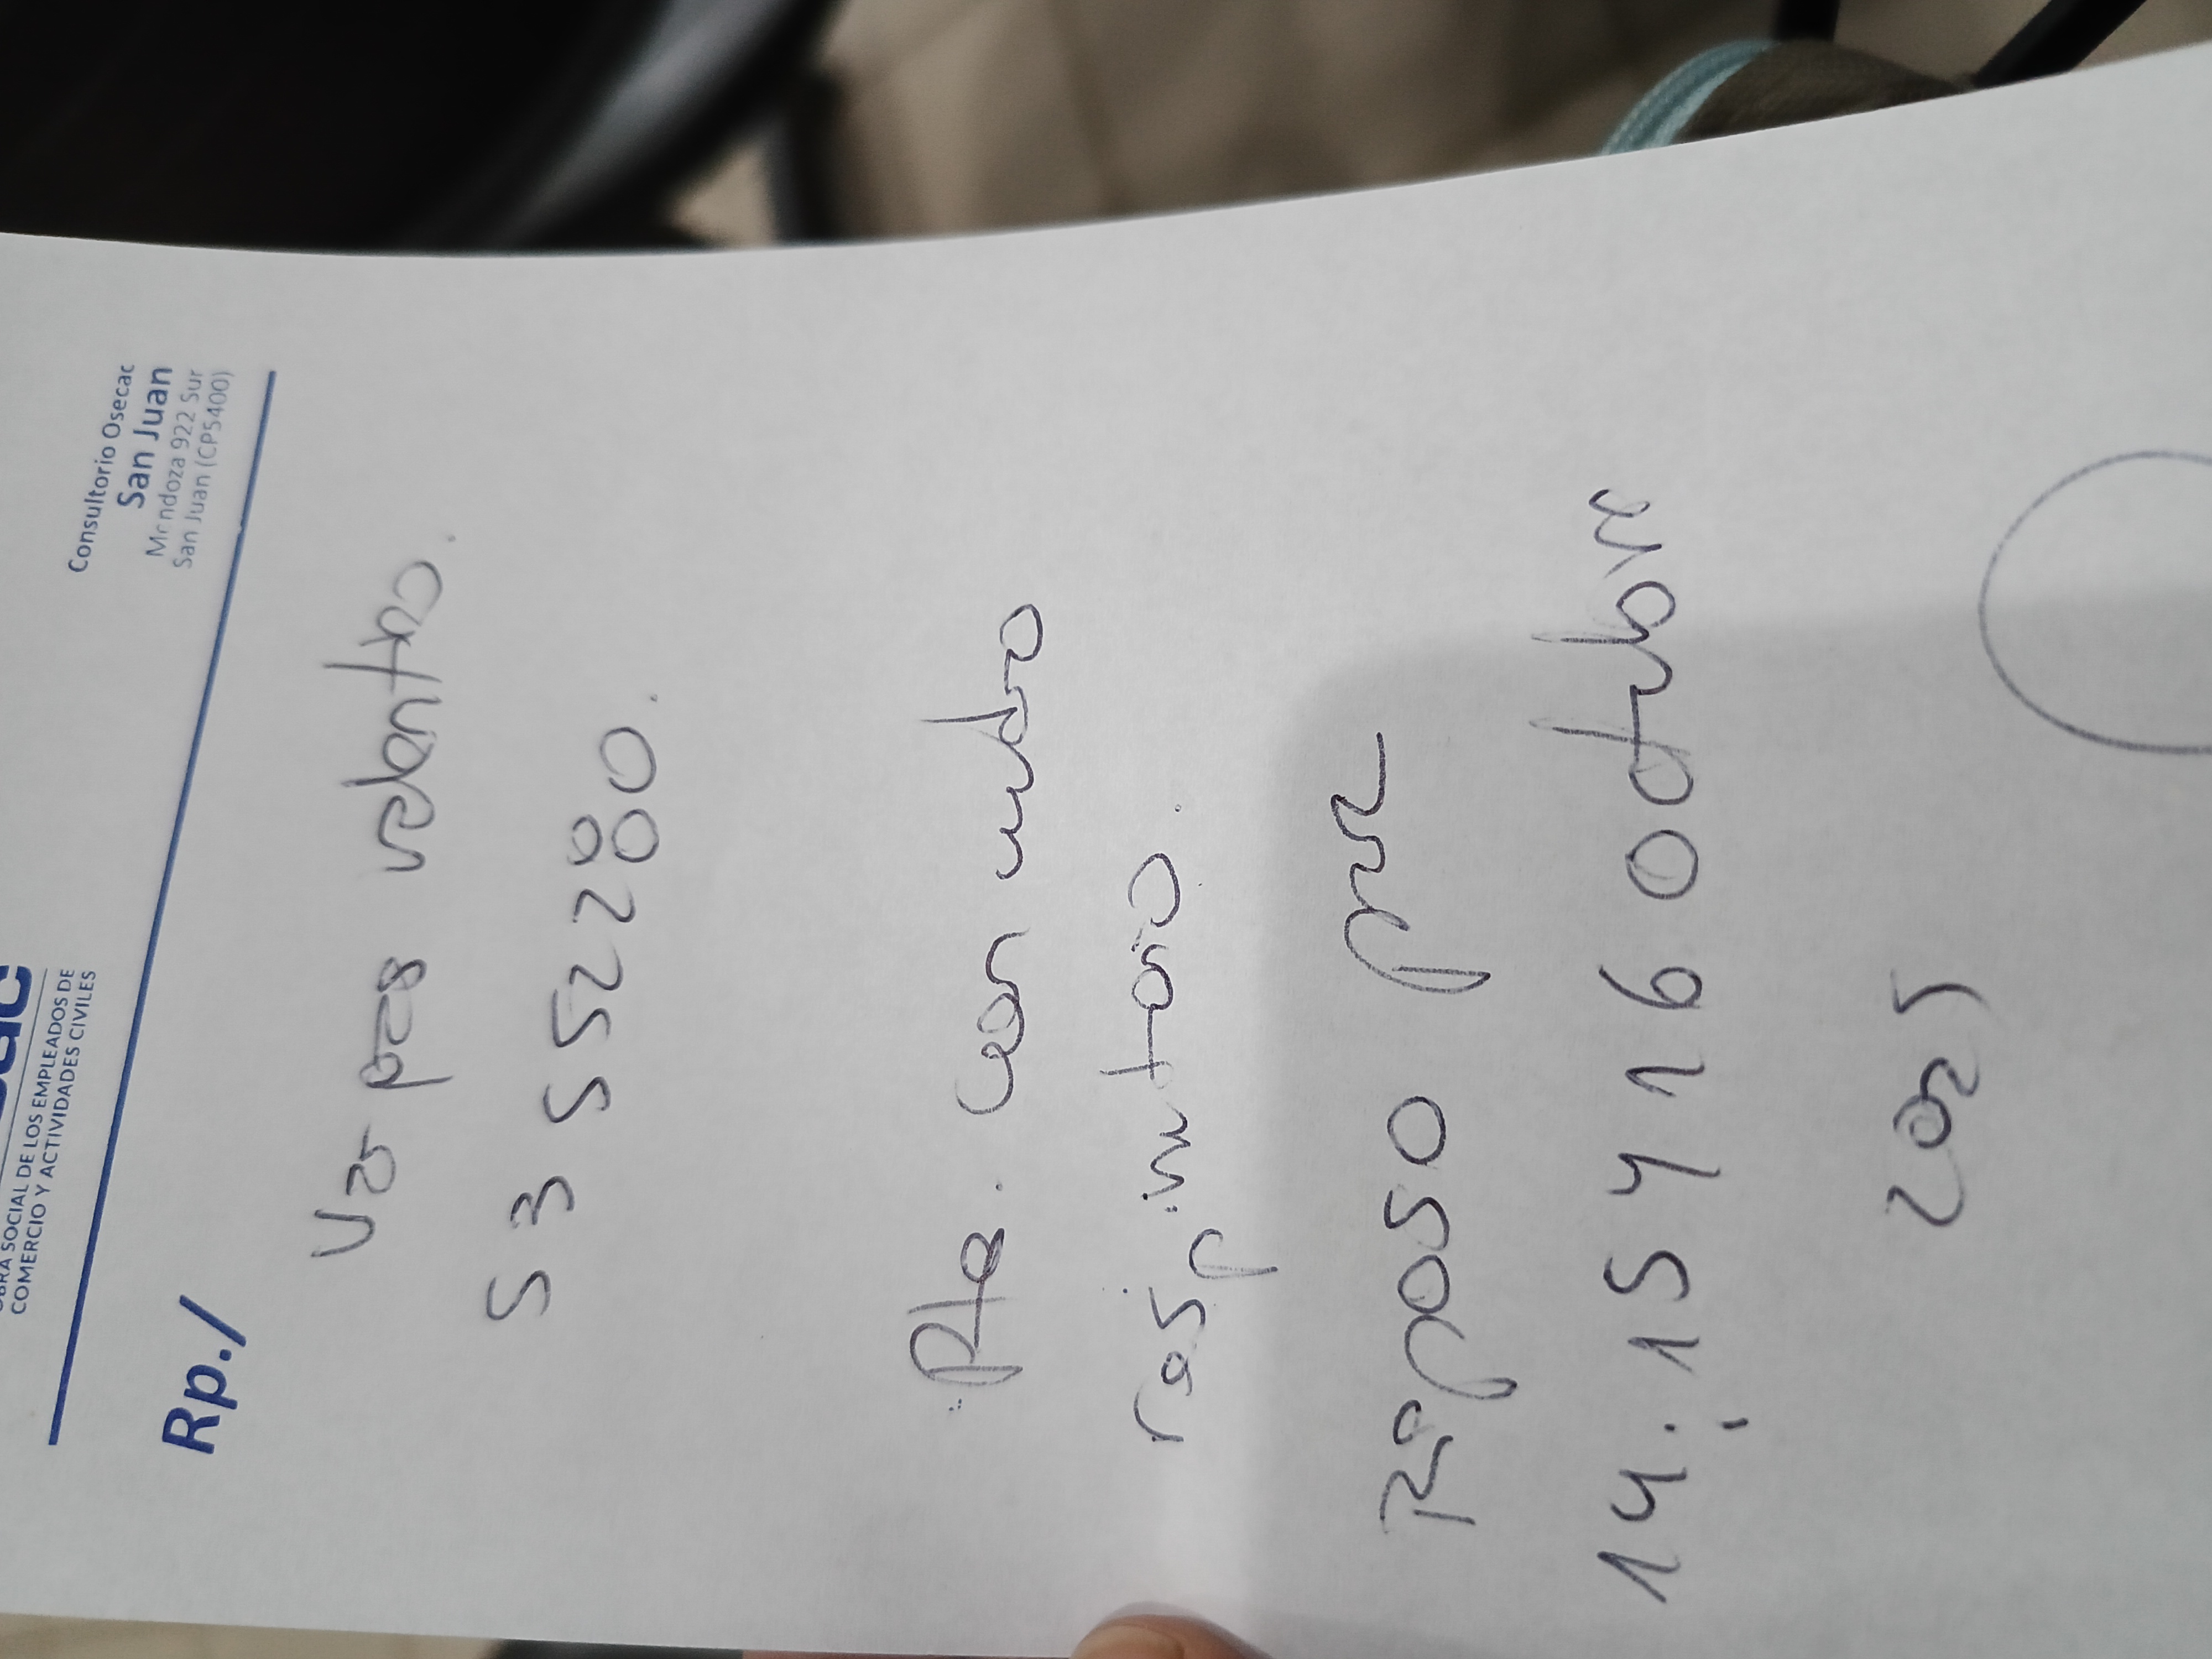 OBRA SOCIAL DE LOS EMPLEADOS DE
COMERCIO Y ACTIVIDADES CIVILES
Consultorio Osecac
San Juan
Mendoza 922 Sur
San Juan (CP5400)
Rp./
Valentino.
53 555280.
Pte. con
respiratorio.
Reposo por
14, 15 y 16 Octubre
2025